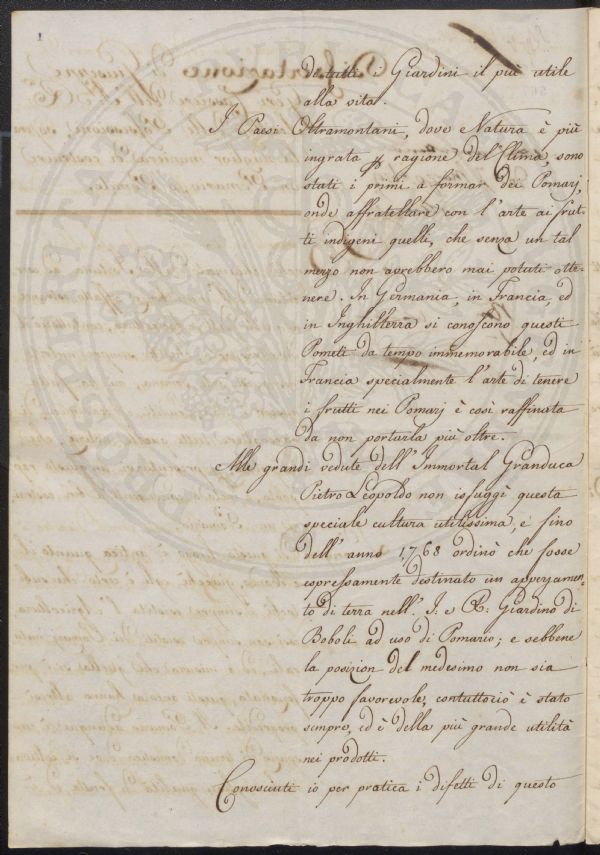 1
de tutti i Giardini il più utile
alla vita.
I Paesi Oltramontani, dove Natura è più
ingrata p ragione del Clima, sono
stati i primi a formar dei Pomarj,
onde affratellare con l'arte ai frut-
ti indigeni quelli, che senza un tal
mezzo non avrebbero mai potuti otte-
nere. In Germania, in Francia, ed
in Inghilterra si conoscono questi
Pometi da tempo immemorabile, ed in
Francia specialmente l'arte di tenere
i frutti nei Pomarj è così raffinata
da non portarla più oltre.
Alle grandi vedute dell'Immortal Granduca
Pietro Leopoldo non isfuggì questa
speciale cultura utilissima, e fino
dell'anno 1768 ordinò che fosse
espressamente destinato un appezzamen-
to di terra nell'I: e R: Giardino di
Boboli ad uso di Pomario; e sebbene
la posizion del medesimo non sia
troppo favorevole, contuttociò è stato
sempre, ed è della più grande utilità
nei prodotti.
Conosciuti io per pratica i difetti di questo